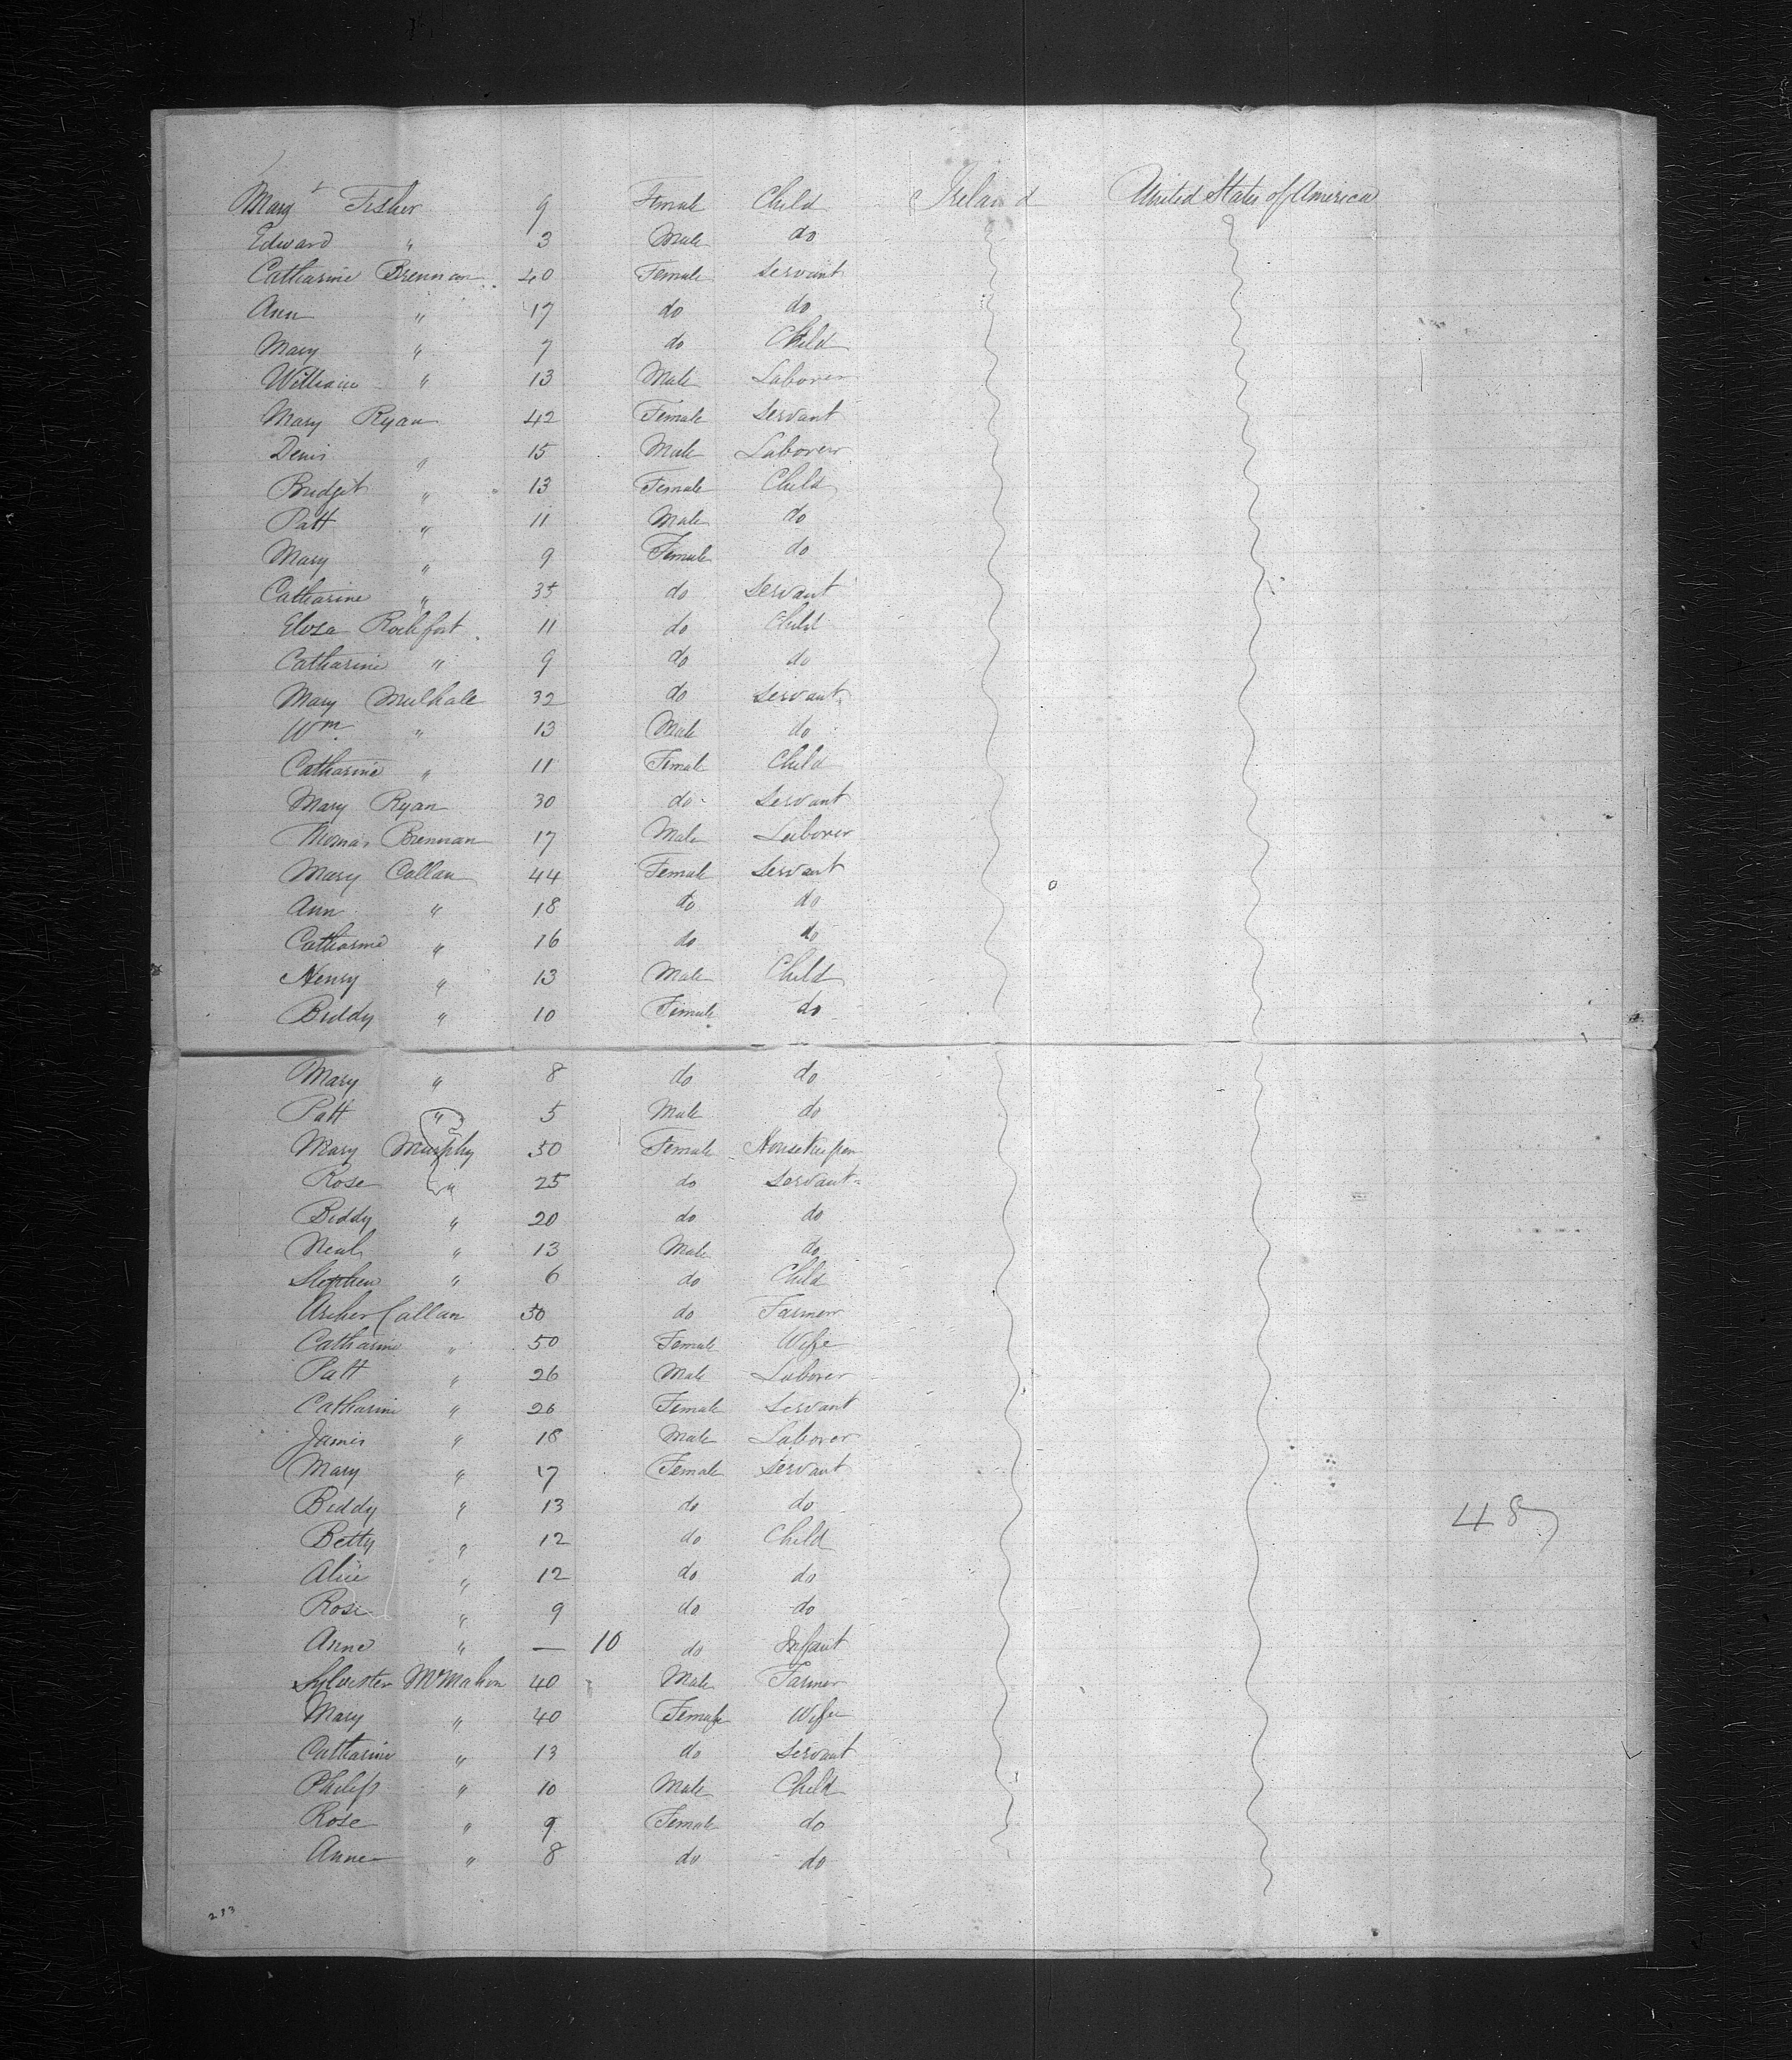 Margt Fisher 9 Female Child Ireland United States of America
Edward " 3 Male do
Catharine Brennan 40 Female Servant
Ann " 17 do do
Mary " 7 do Child
William " 13 Male Laborer
Mary Ryan 42 Female Servant
Denis " 15 Male Laborer
Bridget " 13 Female Child
Patt " 11 Male do
Mary " 9 Female do
Catharine " 35 do Servant
Elosa Rochfort 11 do Child
Catharine " 9 do do
Mary Mulhall 32 do Servant
Wm " 13 Male do
Catharine " 11 Female Child
Mary Ryan 30 do Servant
Thomas Brennan 17 Male Laborer
Mary Callan 44 Female Servant
Ann " 18 do do
Catharine " 16 do do
Henry " 13 Male Child
Biddy " 10 Female do
Mary " 8 do do
Patt " 5 Male do
Mary Murphy 50 Female Housekeeper
Rose " 25 do Servant
Biddy " 20 do do
Neal " 13 Male do
Stephen " 6 do Child
Archer Callan 50 do Farmer
Catharine " 50 Female Wife
Patt " 26 Male Laborer
Catharine " 26 Female Servant
James " 18 Male Laborer
Mary " 17 Female Servant
Biddy " 13 do do
487
Betty " 12 do Child
Alice " 12 do do
Rose " 9 do do
Anne " — 10 do Infant
Sylvester McMahon 40 Male Farmer
Mary " 40 Female Wife
Catharine " 13 do Servant
Philip " 10 Male Child
Rose " 9 Female do
Anne " 8 do do
213